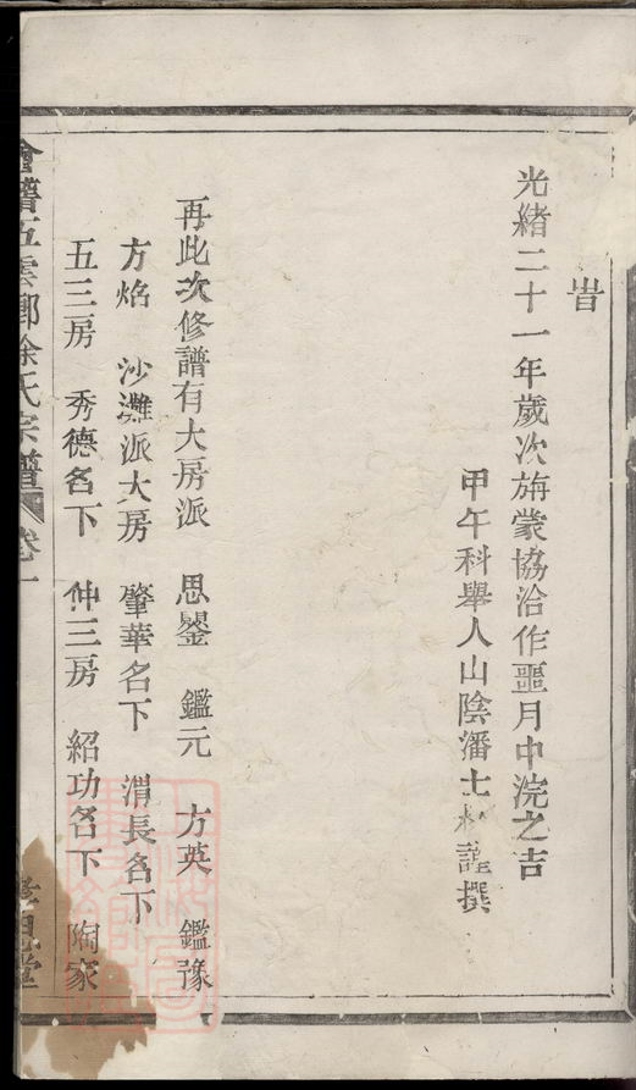 旹
光緒二十一年歲次旃蒙協洽作噩月中浣之吉
甲午科舉人山陰潘士 謹撰
再此次修譜有大房派 思鋆 鑑元 方英 鑑豫
方焰 沙灘派大房 肇華名下 渭長名下
五三房 秀德名下 仲三房 紹功名下 陶家
會稽五雲鄉徐氏宗譜 卷一